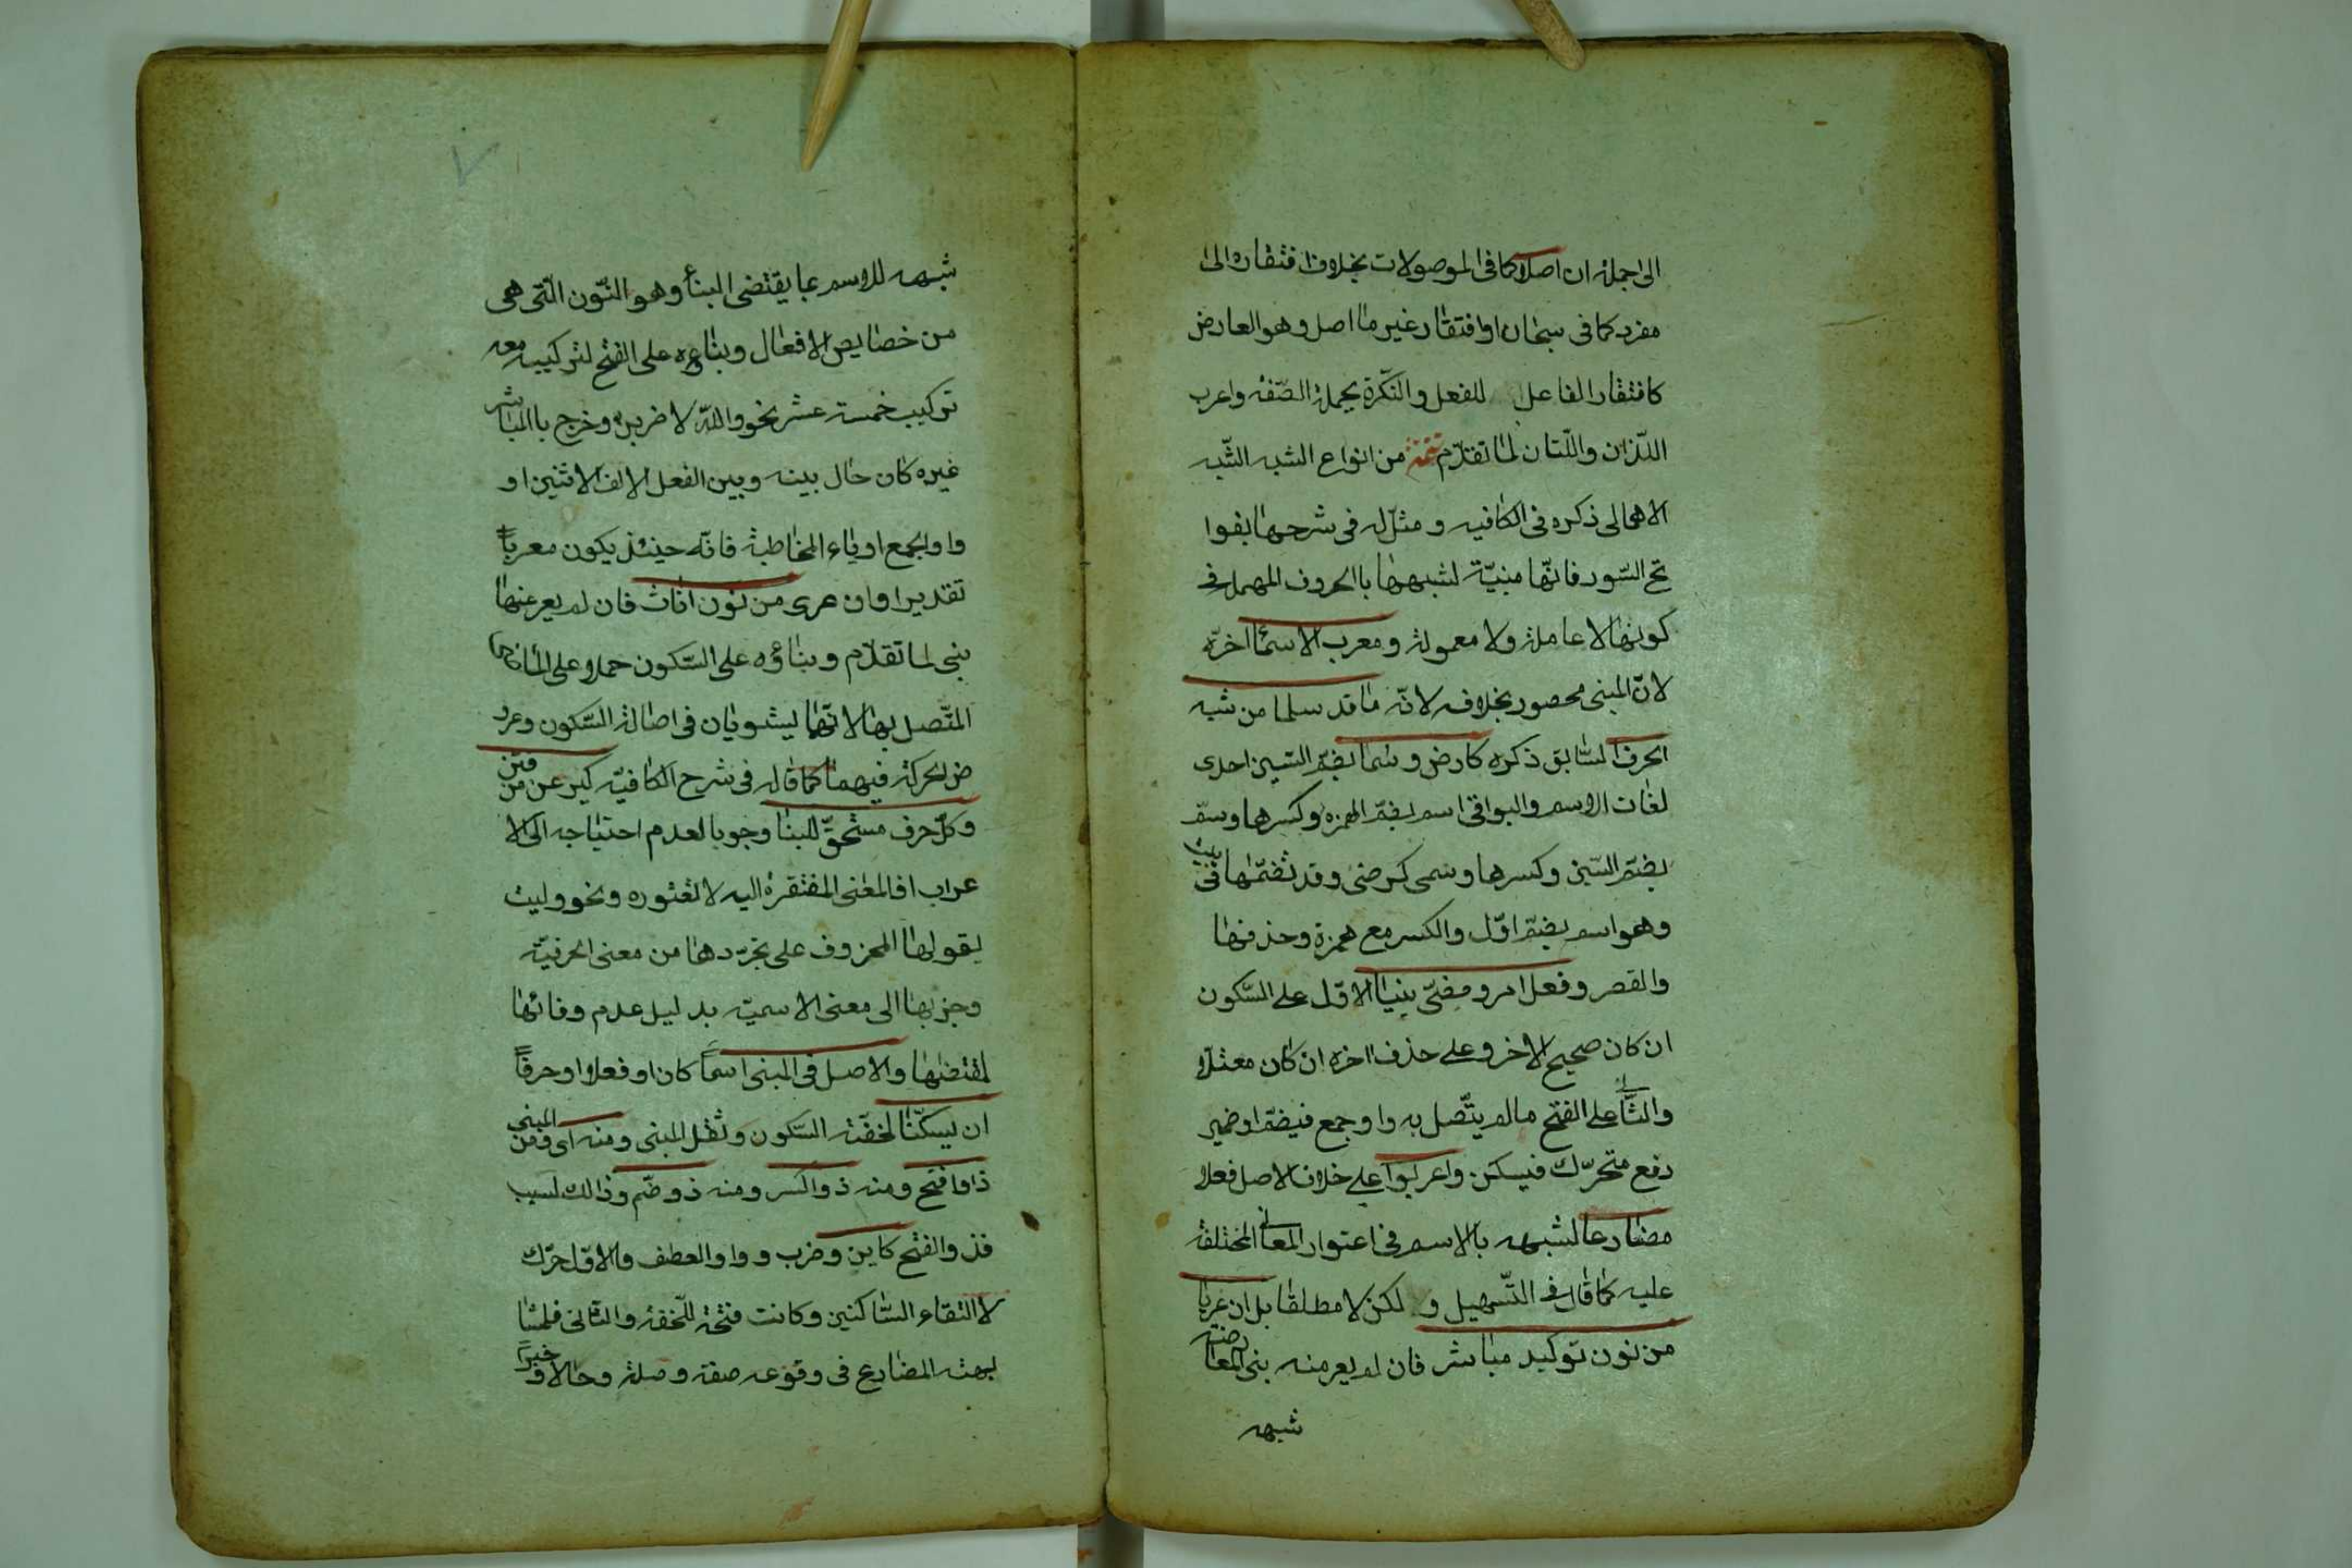 الى اجملة ان اصلا كما فى الموصولات بخلاف افتقاره الى
مفرد كما فى سبحان او افتقار غير ما اصل وهو العارض
كافتقار الفاعل للفعل والنكرة بجملة الصّفة واعرب
اللّذان واللّتان لما تقدّم تتمّة من انواع الشبه الشّبه
الاهمالى ذكره فى الكافيه ومثّل له فى شرحها بفوا
تح السّور فانّها مبنيّة لشبهها باالحروف المهملة فى
كونها لا عاملة ولا معمولة ومعرب الاسما اخرّه
لانّ المبنى محصور بخلافه لانّه ما قد سلما من شبه
الحرف السّابق ذكره كارض وسما بضمّ السّين احدى
لغات الاسم والبواقى اسم بضمّ الهمزه وكسرها وسم
بضمّ السّين وكسرها وسمى كرضى وقد نضمّتها فى بيت
وهو اسم بضمّ اوّل والكسر مع همزة وحذفها
والقصر وفعل امر ومضىّ بنيا الاوّل على السّكون
ان كان صحيح الاخر وعلى حذف اخره ان كان معتلّا
والثّانى على الفتح مالم يتّصل به واو جمع فيضمّ او ضمير
رفع متحرّك فيسكن واعربوا على خلاف الاصل فعلا
مضارعا لشبهه بالاسم فى اعتوار المعانى المختلفة
عليه كما قال فى التّسهيل و لكن لا مطلقا بل ان عريا
من نون توكيد مباشر فان لم يعر منه بنى لمعارضته
شبهه
شبهه للاسم بما يقتضى البناء وهو النّون الّتى هى
من خصايص الافعال وبناءه على الفتح لتركيبه معه
تركيب خمسة عشر نحو واللّه لا ضربن وخرج باالمباشر
غيره كان حال بينه وبين الفعل الالف الاثنين او
واو الجمع او ياء المخاطبة فانّه حينئذ يكون معرباً
تقديرا وان عرى من نون اناث فان لم يعر عنها
بنى لما تقدّم وبناؤه على السّكون حملا على الماضى
المتّصل بها لانّهما يستويان فى اصالة السّكون وعرو
ض الحركة فيهما كما قاله فى شرح الكافيّه كيرعن من فتن
وكلّ حرف مستحقّ للبنا وجوبا لعدم احتياجه الى الا
عراب اذ المعنى المفتقرة اليه لا تعتوره ونحو وليت
يقولها المحزوف على تجرّدها من معنى الحرفيّة
وجزبها الى معنى الاسميّه بدليل عدم وفائها
لمقتضيها والاصل فى المبنى اسماً كان او فعلا او حرفاً
ان يسكّنا لخفّة السّكون وثقل المبنى ومنه اى ومن المبنى
ذو افتح ومنه ذو الكسر ومنه ذو ضمّ وذالك لسبب
فذو الفتح كاين وضرب وواو العطف فالاوّل حرّك
لا التقاء السّاكنين وكانت فتحة للّخفة والثانى فلمشا
بهته المضارع فى وقوعه صفة وصلة وحالا وخبراً